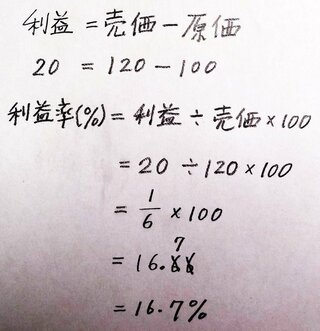 利益 = 売価 - 原価
20 = 120 - 100
利益率(%) = 利益 ÷ 売価 × 100
= 20 ÷ 120 × 100
= 1/6 × 100
7
= 16.66
= 16.7%